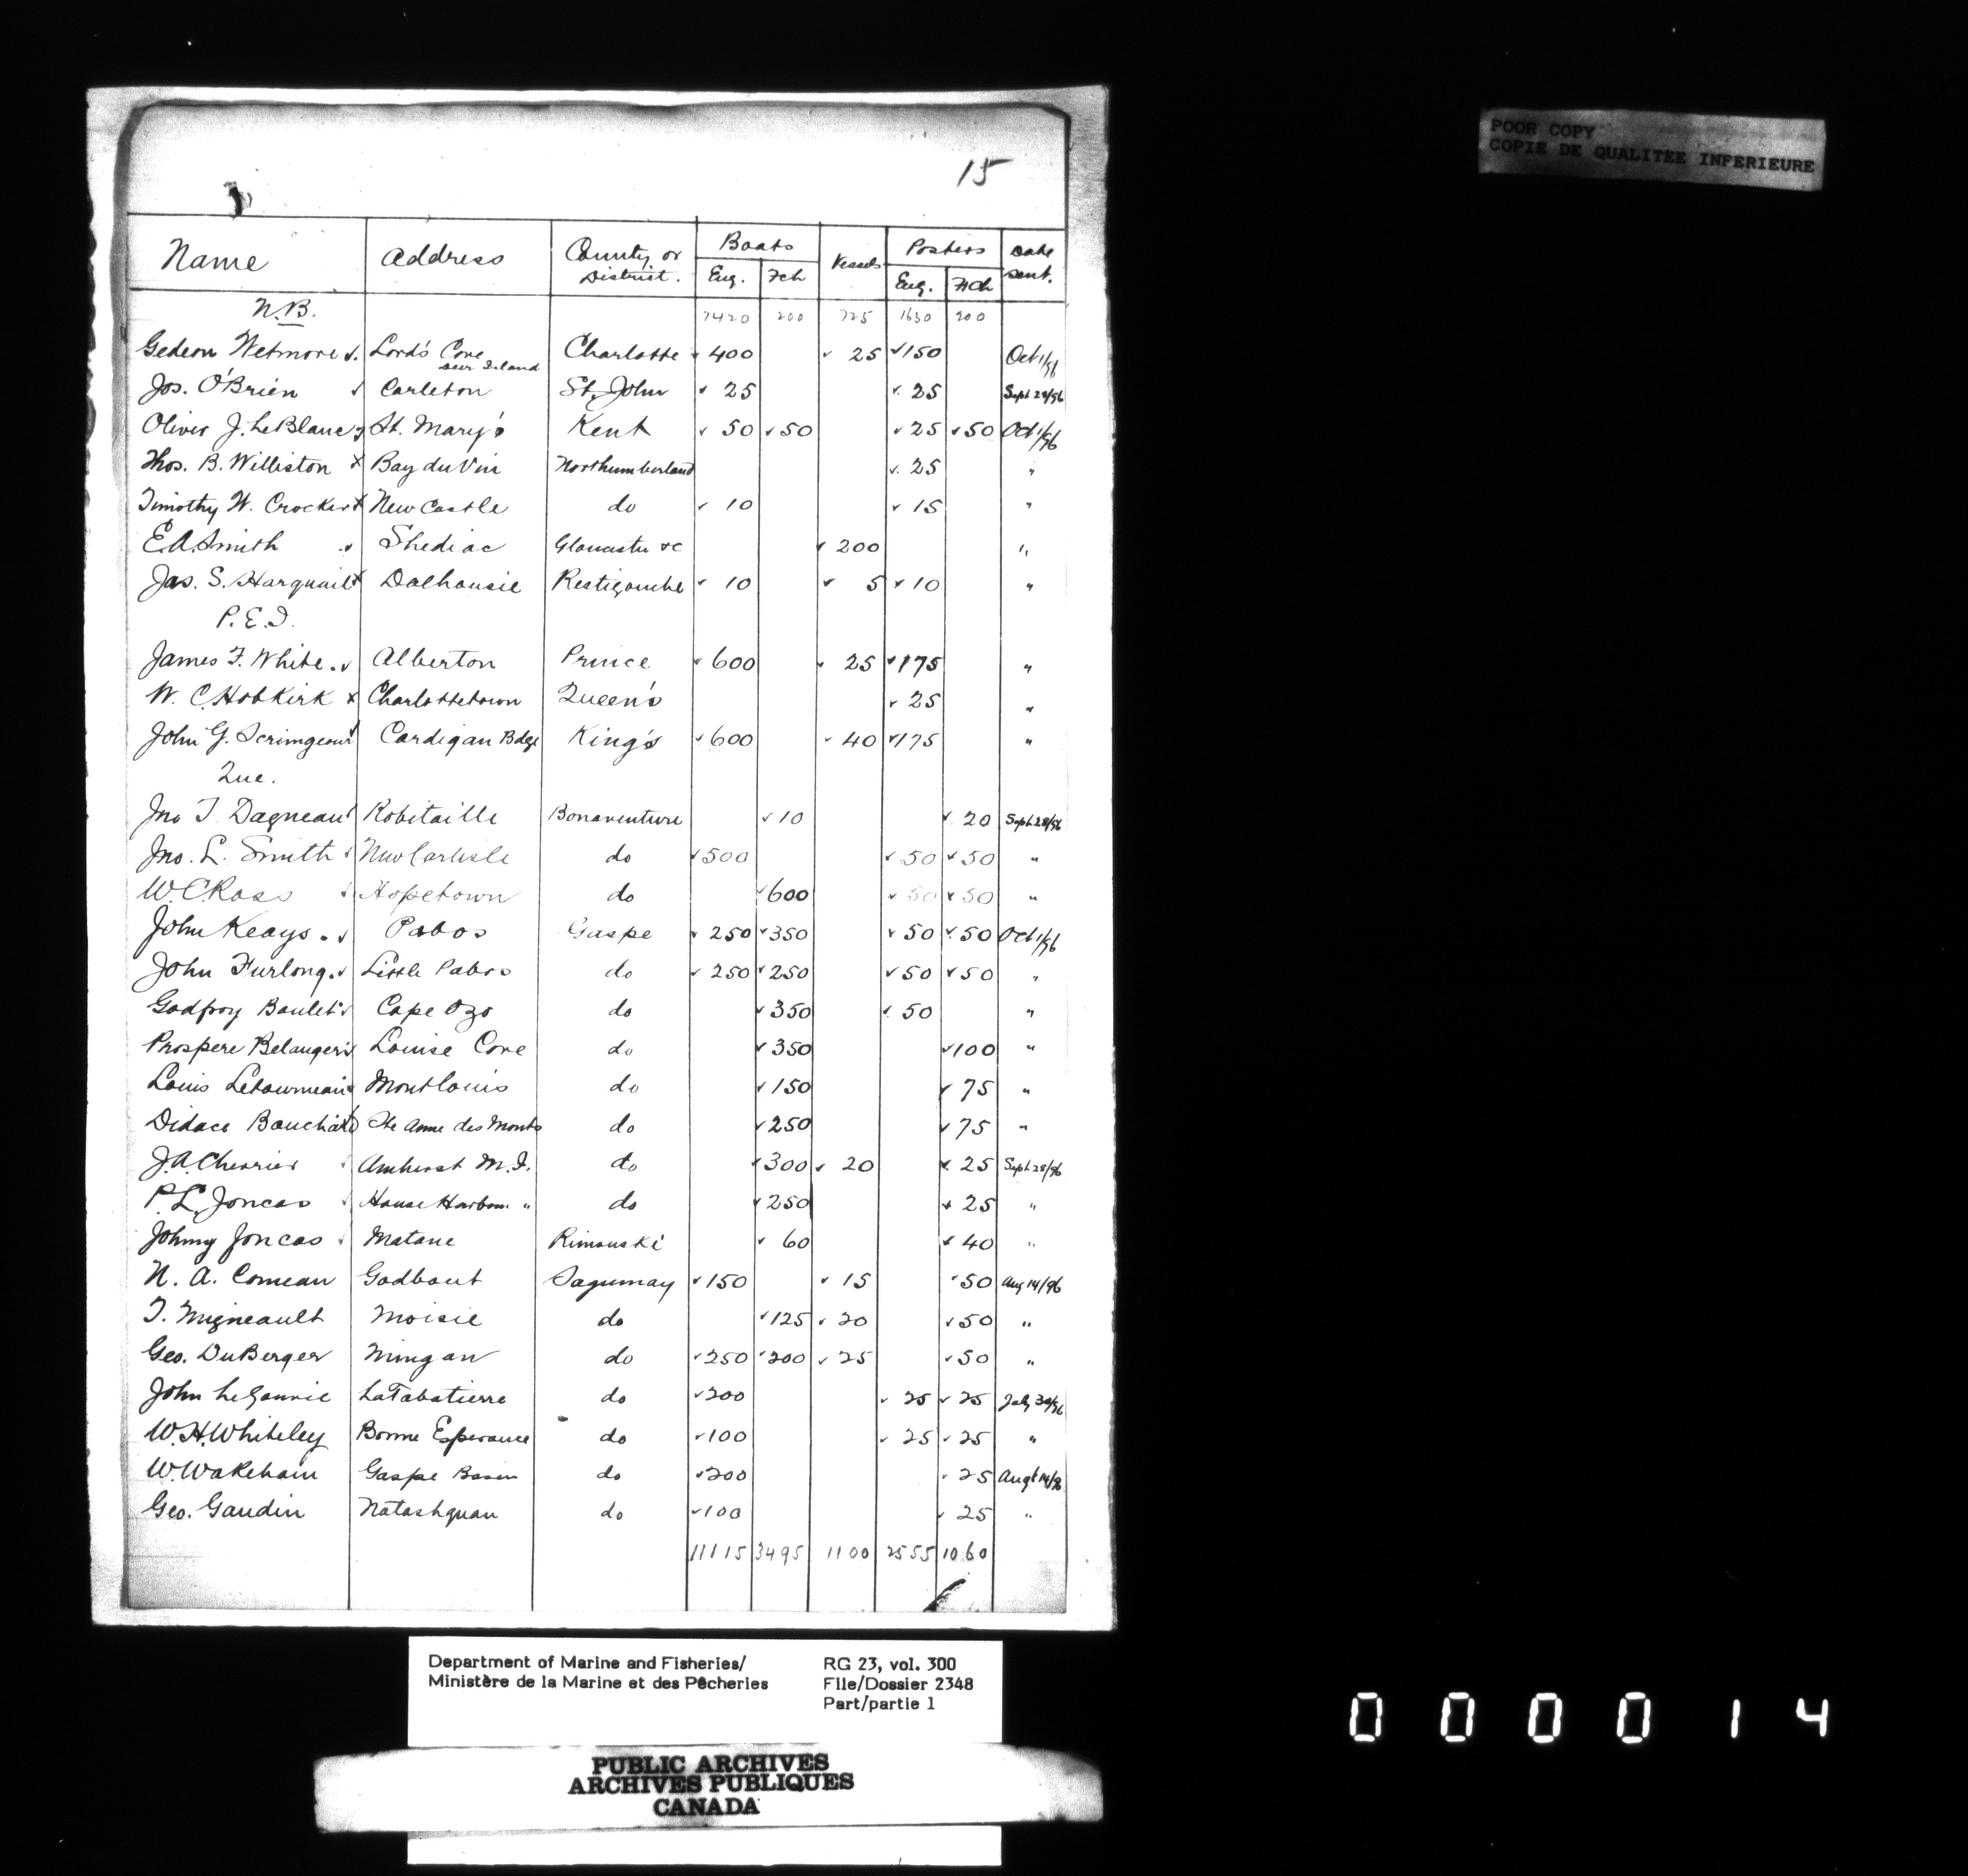 POOR COPY
COPIE DE QUALITÉE INFERIEURE
15
Name Address County or District. Boats Vessels Posters Date sent.
Eng. Fch Eng. Fch
N.B. 7420 200 725 1630 200
Gedeon Wetmore Lord's Cove Charlotte 400 25 150 Oct 1/96
Deer Island
Jos. O'Brien Carleton St. John 25 25 Sept 28/96
Oliver J. LeBlanc St. Mary's Kent 50 50 25 50 Oct 1/96
Thos. B. Williston x Bay du Vin Northumberland 25 "
Timothy W. Crocker x New Castle do 10 15 "
E.A. Smith Shediac Gloucester &c 200 "
Jas. S. Harquail x Dalhousie Restigouche 10 5 10 "
P.E.I.
James F. White Alberton Prince 600 25 175 "
W. C. Hobkirk x Charlottetown Queen's 25 "
John G. Scrimgeour Cardigan Bdge King's 600 40 175 "
Que.
Jno T Dagneau Robitaille Bonaventure 10 20 Sept 28/96
Jno. L. Smith New Carlisle do 500 50 50 "
W.C. Ross Hopetown do 600 50 50 "
John Keays Pabos Gaspe 250 350 50 50 Oct 1/96
John Furlong Little Pabos do 250 250 50 50 "
Godfroy Boulet Cape Ozo do 350 50 "
Prospere Belanger Louise Cove do 350 100 "
Louis Letourneau Mont Louis do 150 75 "
Didace Bouchard Ste Anne des Monts do 250 75 "
J.A. Chevrier Amherst M.I. do 300 20 25 Sept 28/96
P.L. Joncas House Harbour " do 250 25 "
Johnny Joncas Matane Rimouski 60 40 "
N. A. Comeau Godbout Saguenay 150 15 50 Aug 14/96
T. Migneault Moisie do 125 20 50 "
Geo. DuBerger Mingan do 250 200 25 50 "
John LeGouvie LaTabatierre do 200 25 25 July 30/96
W.H. Whiteley Bonne Esperance do 100 25 25 "
W. Wakeham Gaspe Basin do 200 25 Augt 14/96
Geo. Gaudin Natashquan do 100 25 "
11115 3495 1100 2555 1060
Department of Marine and Fisheries/ RG 23, vol. 300
Ministère de la Marine et des Pêcheries File/Dossier 2348
Part/partie 1
PUBLIC ARCHIVES
ARCHIVES PUBLIQUES
CANADA
000014